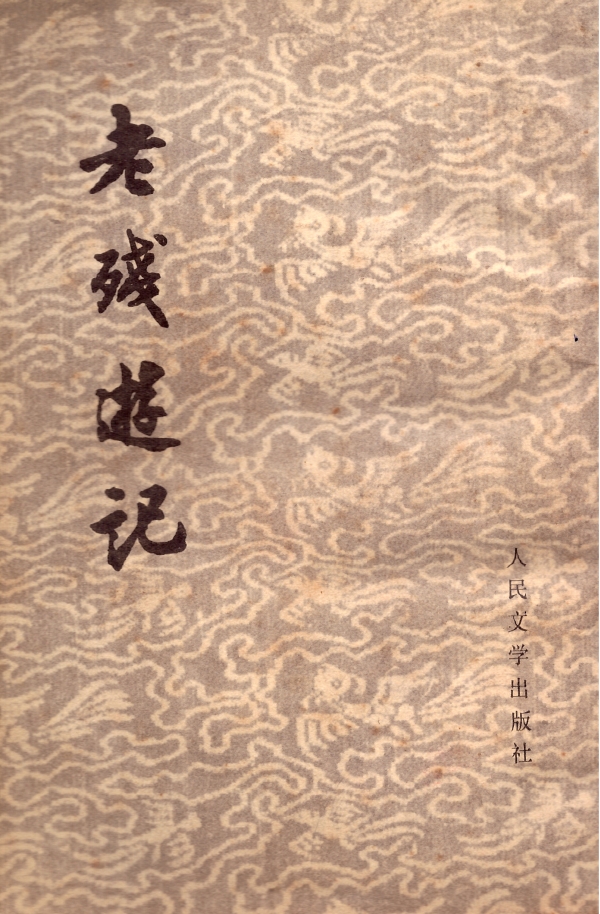 老殘遊記
人民文学出版社